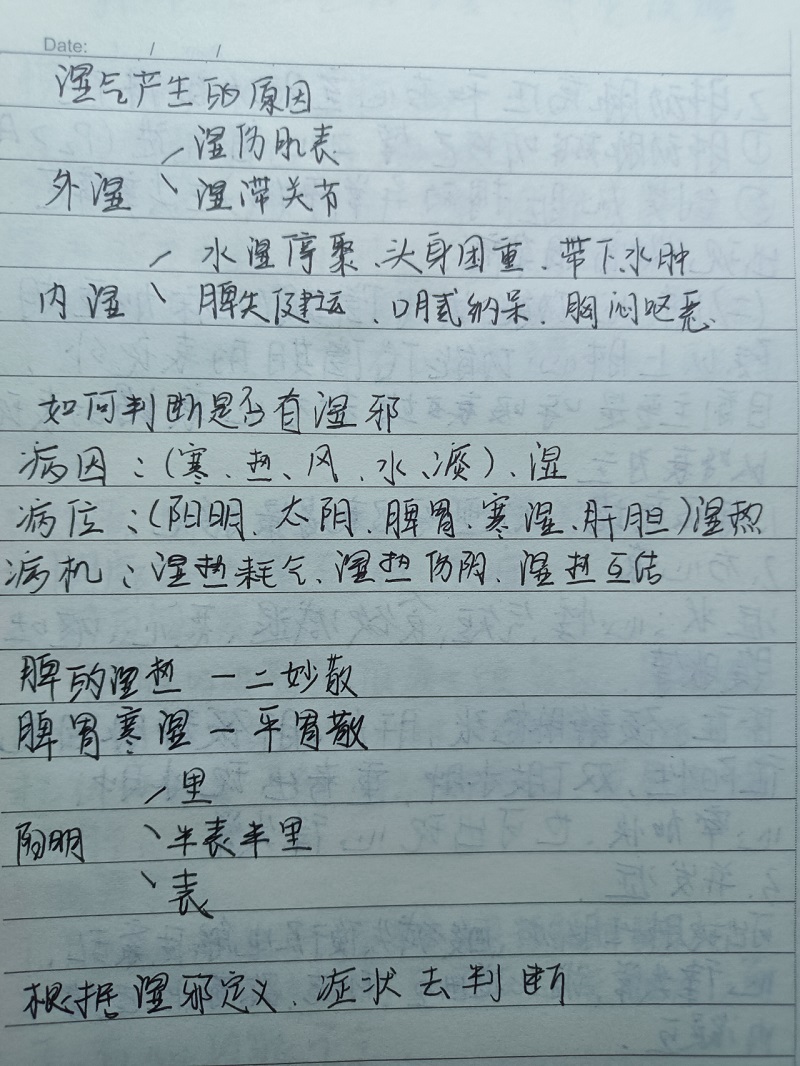 Date: / /
湿气产生的原因
湿伤肌表
外湿 湿滞关节
水湿停聚、头身困重、带下、水肿
内湿 脾失健运、口腻纳呆、胸闷呕恶、
如何判断是否有湿邪
病因:(寒、热、风、水、痰)、湿
病位:(阳明、太阴、脾胃、寒湿、肝胆)湿热
病机:湿热耗气、湿热伤阴、湿热互结
脾的湿热—二妙散
脾胃寒湿—平胃散
里
阳明 半表半里
表
根据湿邪定义、症状去判断